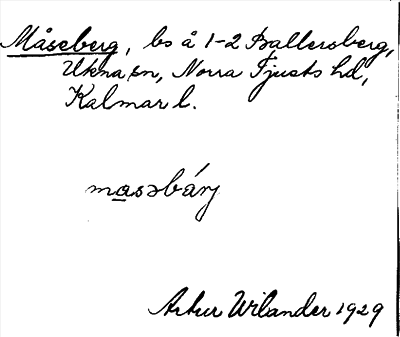 Måseberg, bs å 1-2 Ballersberg,
Ukna sn, Norra Tjusts hd,
Kalmar l.
masəbárj
Artur Wilander 1929